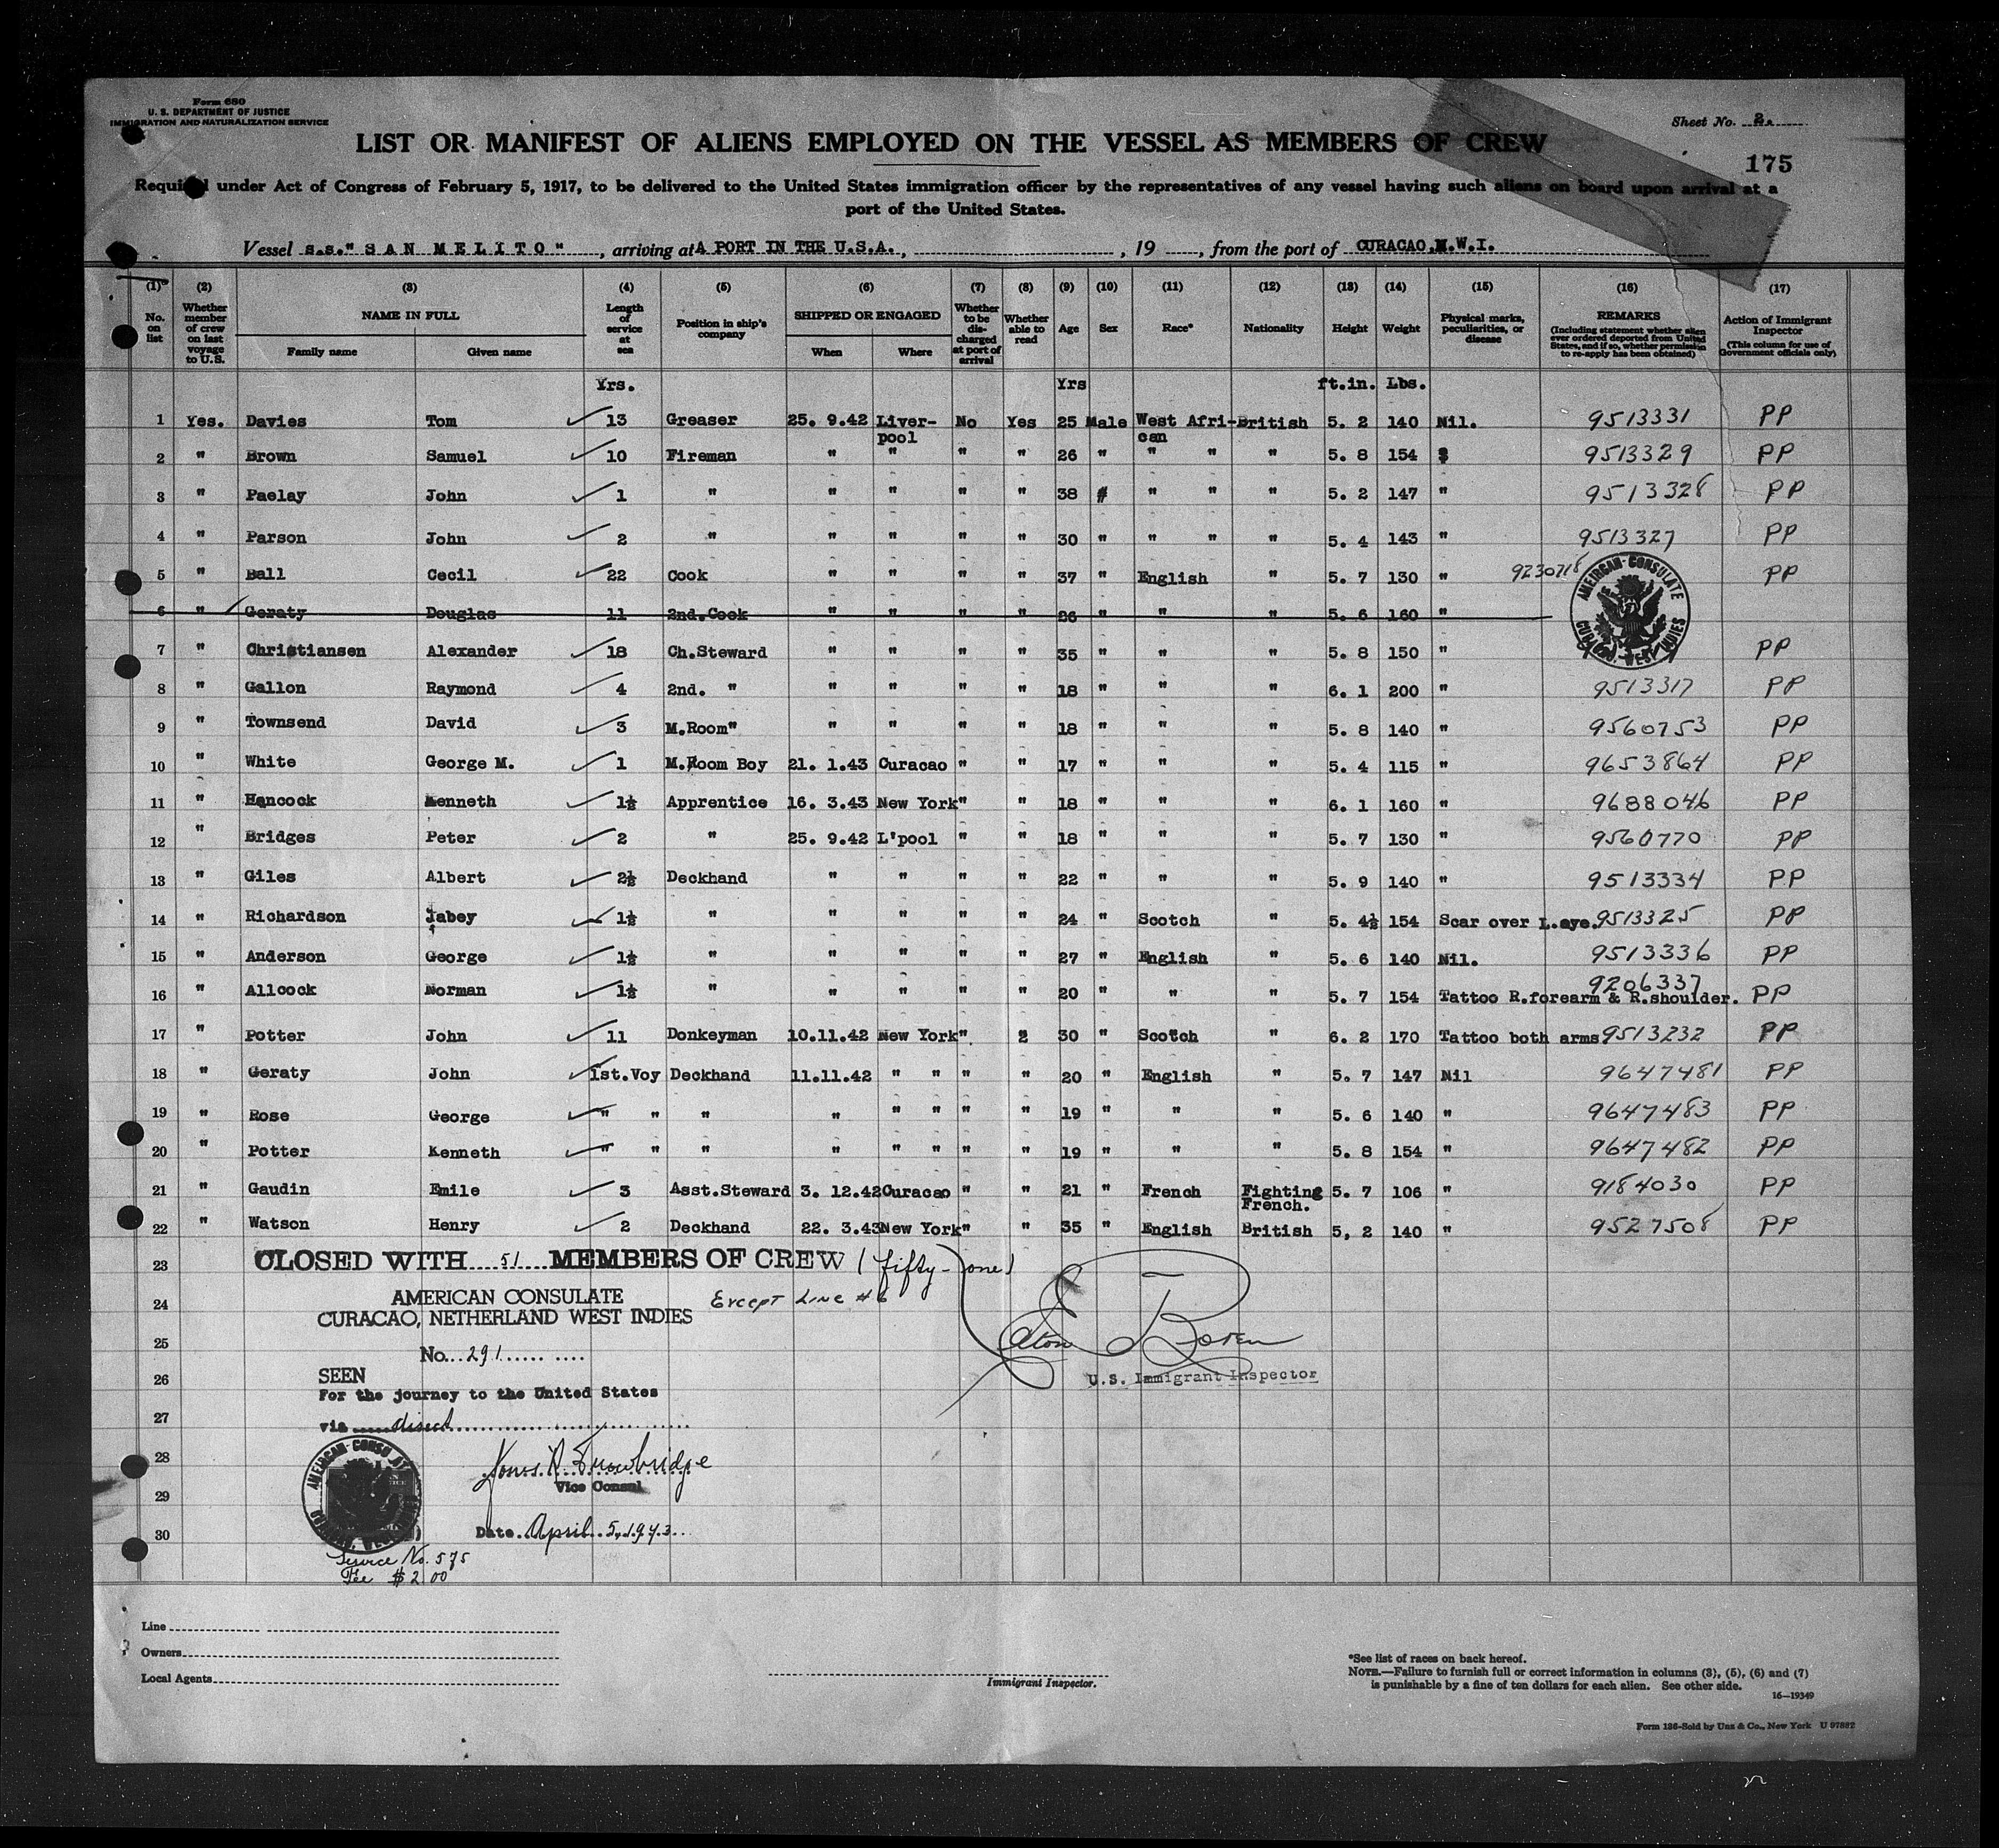 Form 680
U. S. DEPARTMENT OF JUSTICE
IMMIGRATION AND NATURALIZATION SERVICE
Sheet No. 2.
LIST OR MANIFEST OF ALIENS EMPLOYED ON THE VESSEL AS MEMBERS OF CREW
175
Required under Act of Congress of February 5, 1917, to be delivered to the United States immigration officer by the representatives of any vessel having such aliens on board upon arrival at a
port of the United States.
Vessel s.s." S A N M E L I T O ", arriving at A PORT IN THE U.S.A., , 19 , from the port of CURACAO,N.W.I.
(1) (2) (3) (4) (5) (6) (7) (8) (9) (10) (11) (12) (13) (14) (15) (16) (17)
No. on list Whether member of crew on last voyage to U.S. NAME IN FULL Family name Given name Length of service at sea Position in ship's company SHIPPED OR ENGAGED When Where Whether to be discharged at port of arrival Whether able to read Age Sex Race* Nationality Height Weight Physical marks, peculiarities, or disease REMARKS (Including statement whether alien ever ordered deported from United States, and if so, whether permission to re-apply has been obtained) Action of Immigrant Inspector (This column for use of Government officials only)
Yrs. Yrs ft.in. Lbs.
1 Yes. Davies Tom 13 Greaser 25. 9.42 Liver-pool No Yes 25 Male West Afri-can British 5. 2 140 Nil. 9513331 PP
2 " Brown Samuel 10 Fireman " " " " 26 " " " " 5. 8 154 9513329 PP
3 " Paelay John 1 " " " " " 38 " " " 5. 2 147 " 9513328 PP
4 " Parson John 2 " " " " " 30 " " " " 5. 4 143 " 9513327 PP
5 " Ball Cecil 22 Cook " " " " 37 " English " 5. 7 130 " 9230718 PP
6 " Geraty Douglas 11 2nd.Cook " " " " 26 " " " 5. 6 160 "
AMERICAN CONSULATE CURACAO, WEST INDIES
7 " Christiansen Alexander 18 Ch.Steward " " " " 35 " " " 5. 8 150 " PP
8 " Gallon Raymond 4 2nd. " " " " " 18 " " " 6. 1 200 " 9513317 PP
9 " Townsend David 3 M.Room" " " " " 18 " " " 5. 8 140 " 9560753 PP
10 " White George M. 1 M.Room Boy 21. 1.43 Curacao " " 17 " " " 5. 4 115 " 9653864 PP
11 " Hancock Kenneth 1½ Apprentice 16. 3.43 New York " " 18 " " " 6. 1 160 " 9688046 PP
12 " Bridges Peter 2 " 25. 9.42 L'pool " " 18 " " " 5. 7 130 " 9560770 PP
13 " Giles Albert 2½ Deckhand " " " " 22 " " " 5. 9 140 " 9513334 PP
14 " Richardson Jabey 1½ " " " " " 24 " Scotch " 5. 4½ 154 Scar over L.eye. 9513325 PP
15 " Anderson George 1½ " " " " " 27 " English " 5. 6 140 Nil. 9513336 PP
16 " Allcock Norman 1½ " " " " " 20 " " " 5. 7 154 Tattoo R.forearm & R.shoulder. 9206337 PP
17 " Potter John 11 Donkeyman 10.11.42 New York " 30 " Scotch " 6. 2 170 Tattoo both arms 9513232 PP
18 " Geraty John 1st.Voy Deckhand 11.11.42 " " " " 20 " English " 5. 7 147 Nil 9647481 PP
19 " Rose George " " " " " " " " 19 " " " 5. 6 140 " 9647483 PP
20 " Potter Kenneth " " " " " " " " 19 " " " 5. 8 154 " 9647482 PP
21 " Gaudin Emile 3 Asst.Steward 3. 12.42 Curacao " " 21 " French Fighting French. 5. 7 106 " 9184030 PP
22 " Watson Henry 2 Deckhand 22. 3.43 New York " " 35 " English British 5, 2 140 " 9527508 PP
23 CLOSED WITH 51 MEMBERS OF CREW (fifty-one)
24 AMERICAN CONSULATE Except Line #6
CURACAO, NETHERLAND WEST INDIES
25 Eaton Boren
No. 291
U.S. Immigrant Inspector
26 SEEN
For the journey to the United States
27 via direct
28 Trowbridge
Vice Consul
29
AMERICAN CONSULATE
30 Date April 5, 1943
Service No. 575
Fee $2.00
Line
Owners
Local Agents
Immigrant Inspector.
*See list of races on back hereof.
NOTE.—Failure to furnish full or correct information in columns (3), (5), (6) and (7)
is punishable by a fine of ten dollars for each alien. See other side.
16—19349
Form 126-Sold by Unz & Co., New York U 97882